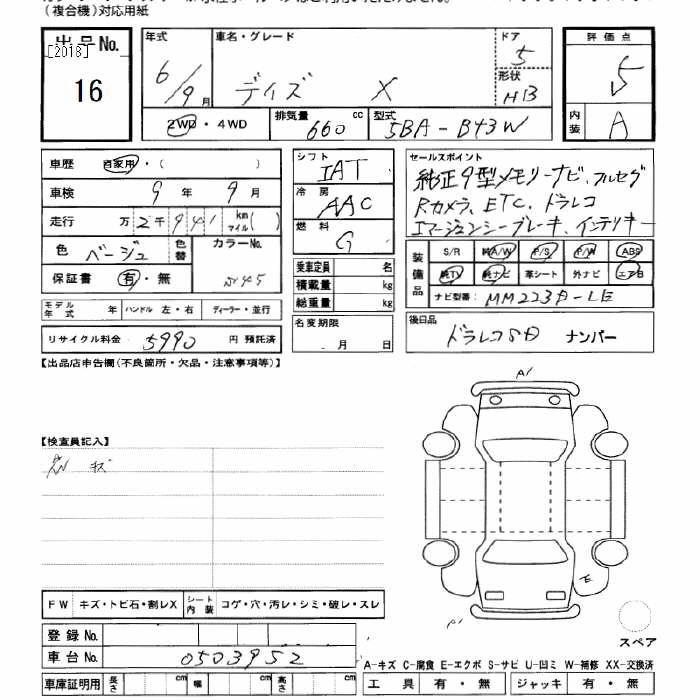 (複合機)対応用紙
出品No.
[2018]
16
年式 車名・グレード ドア
6/9月 デイズ X 5
形状 HB
2WD・4WD 排気量 660 cc 型式 5BA-B43W
評価点 5
内装 A
車歴 自家用・( )
車検 9年 9月
走行 万2千941 km マイル( )
色 ベージュ 色替 カラーNo.
保証書 有・無
モデル年式 年 ハンドル 左・右 ディーラー・並行
リサイクル料金 5990 円 預託済
シフト IAT
冷房 AAC
燃料 G
乗車定員 名
積載量 kg
総重量 kg
名変期限
月 日
セールスポイント
純正9型メモリーナビ、フルセグ
Rカメラ、ETC、ドラレコ
エマージェンシーブレーキ、インテリキー
装備品 S/R 純A/W P/S P/W ABS
純TV 純ナビ 革シート 外ナビ エアB
ナビ型番
後日品 ドラレコSD ナンバー
【出品店申告欄(不良箇所・欠品・注意事項等)】
【検査員記入】
キズ
A1
E
FW キズ・トビ石・割レX シート内装 コゲ・穴・汚レ・シミ・破レ・スレ
登録No.
車台No. 0503952
車庫証明用 長さ cm 幅 cm 高さ cm
スペア
A-キズ C-腐食 E-エクボ S-サビ U-凹ミ W-補修 XX-交換済
工具 有・無 ジャッキ 有・無